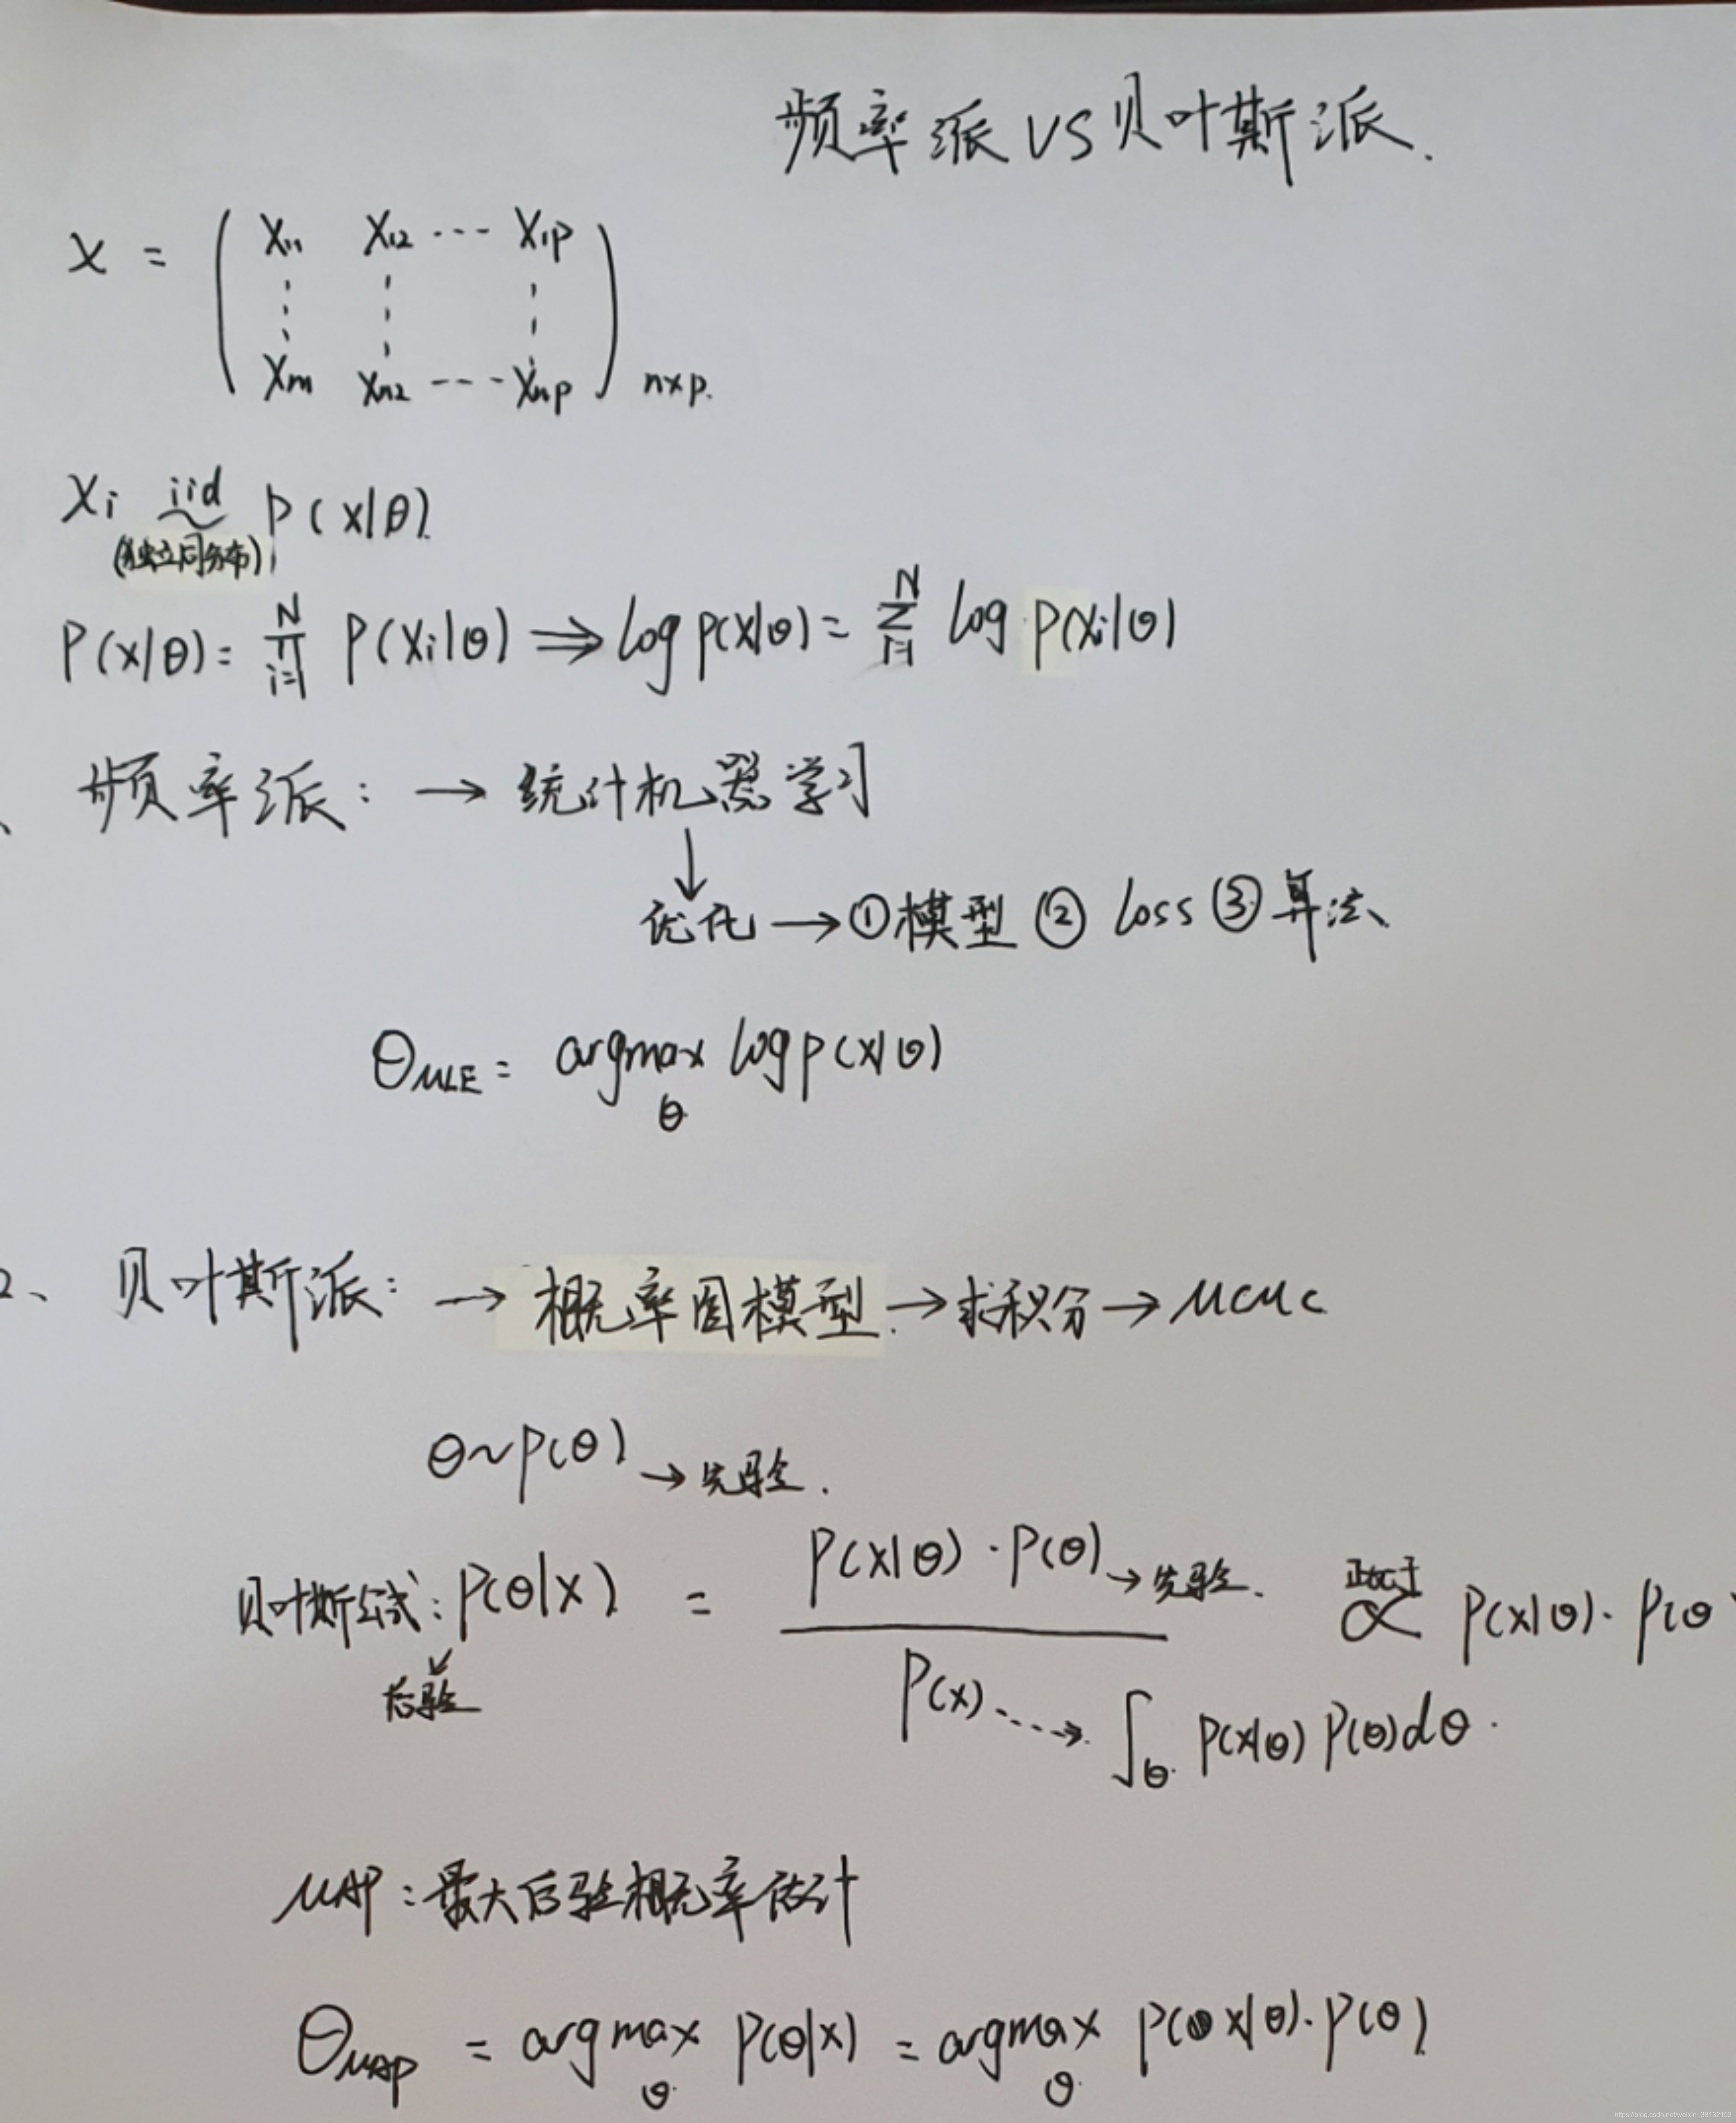 频率派 VS 贝叶斯派.
X = ( X11 X12 ··· X1p
⋮ ⋮ ⋮
Xn1 Xn2 ··· Xnp ) n×p.
Xi iid ~ P(X|θ).
(独立同分布)
P(X|θ) = ∏ N i=1 P(Xi|θ) ⇒ log P(X|θ) = Σ N i=1 log P(Xi|θ)
、 频率派: → 统计机器学习
↓
优化 → ① 模型 ② Loss ③ 算法、
θMLE = argmax θ log P(X|θ)
2、 贝叶斯派: → 概率图模型. → 求积分 → MCMC
θ ~ P(θ) → 先验.
贝叶斯公式: P(θ|X) = P(X|θ) · P(θ) → 先验. 正比于 ∝ P(X|θ) · P(θ
↙ 后验
P(X) ····→ ∫θ P(X|θ) P(θ) dθ.
MAP: 最大后验概率估计
θMAP = argmax θ P(θ|X) = argmax θ P(X|θ) · P(θ)